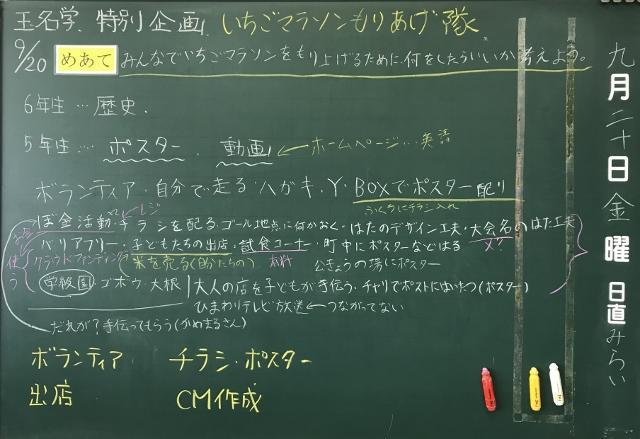 玉名学 特別企画 いちごマラソンもりあげ隊
9/20 めあて みんなでいちごマラソンをもり上げるために、何をしたらいいか考えよう。
6年生…歴史.
5年生… ポスター . 動画 ← ホームページ…英語
ボランティア・自分で走る ハガキ、Y・BOXでポスター配り
ふくろにチラシ入れ
ぼ金活動・チラシを配る・ゴール地点に何かおく・はたのデザイン工夫・大会名のはた工夫
レジ
バリアフリー・子どもたちの出店・試食コーナー・町中にポスターなどはる
使う
クラウドファンディング 米を売る(自分たちの) 公きょうの場にポスター
学級園 ゴボウ 大根 大人の店を子どもが手伝う. チャリでポストにはいたつ(ポスター)
ひまわりテレビ放送 ← つながってない
だれが?手伝ってもらう(かめまるさん)
ボランティア チラシ・ポスター
出店 CM作成
九月二十日 金曜 日直 みらい